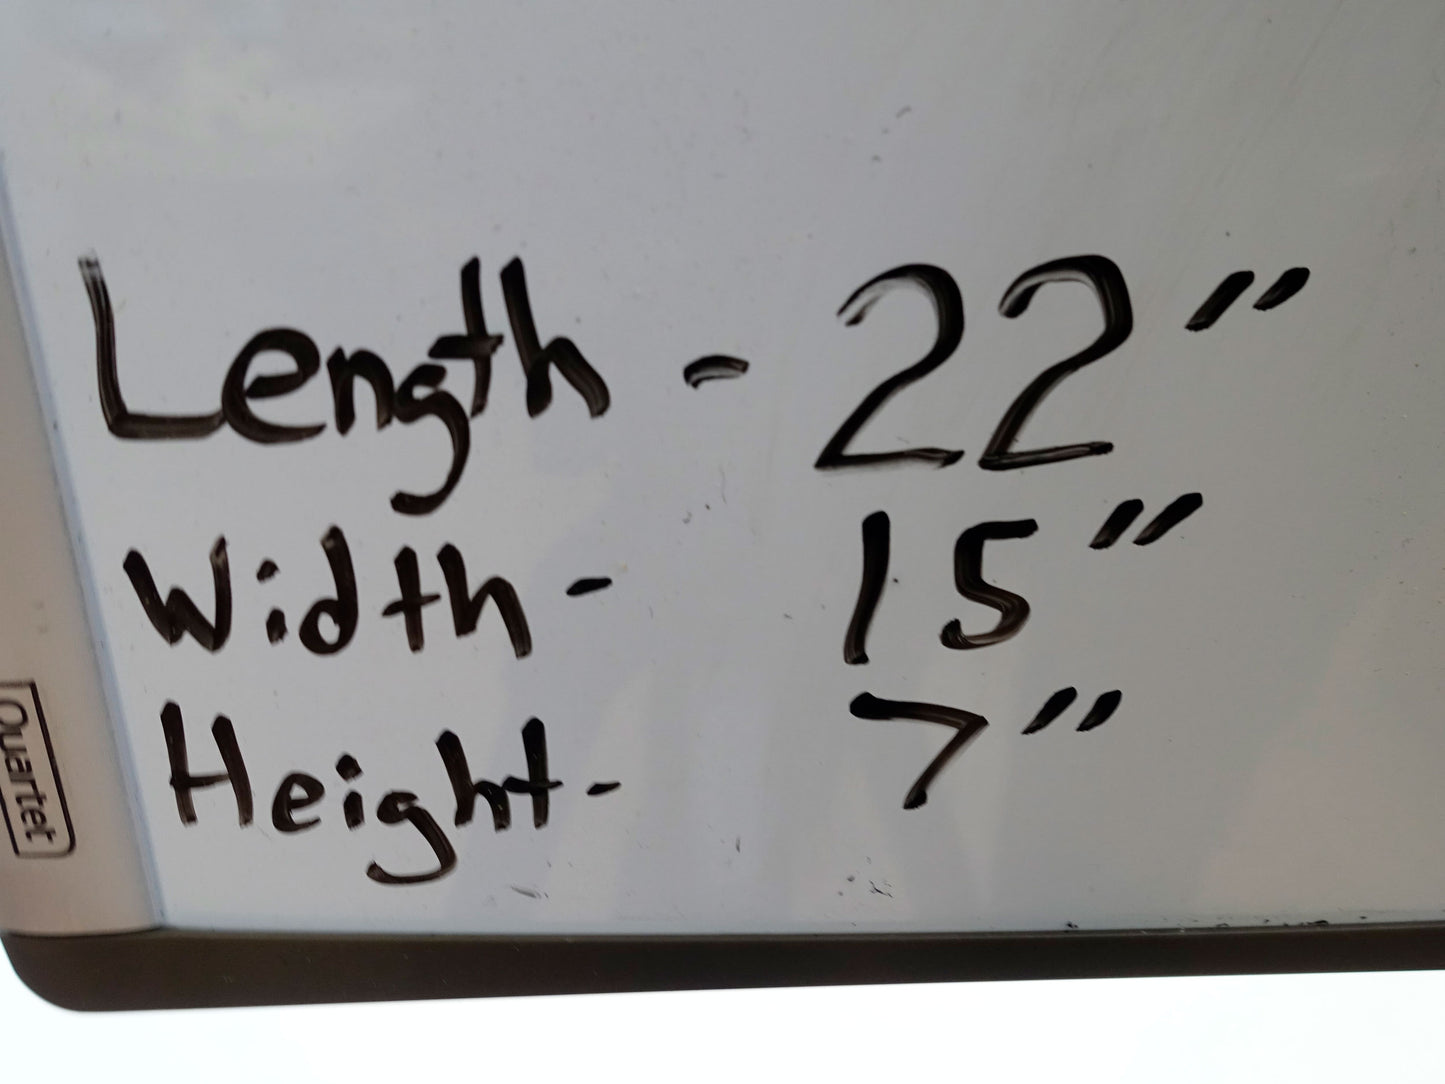 Length - 22"
Width - 15"
Height - 7"
Quartet